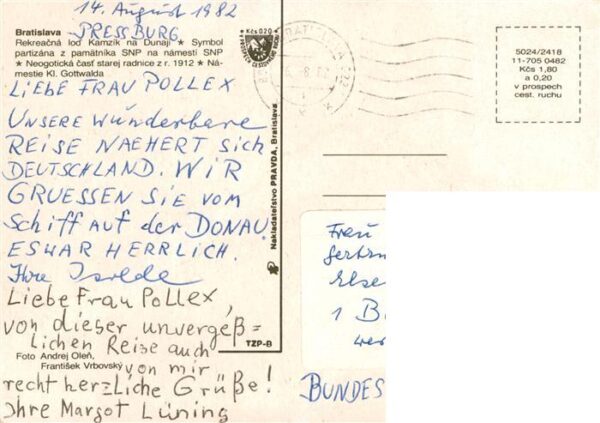 14. August 1982
PRESSBURG
Bratislava
Rekreačná loď Kamzík na Dunaji ★ Symbol
partizána z pamätníka SNP na námestí SNP
★ Neogotická časť starej radnice z r. 1912 ★ Ná-
mestie Kl. Gottwalda
Kčs 0,20
BRATISLAVA
5024/2418
11-705 0482
Kčs 1,80
a 0,20
v prospech
cest. ruchu
LIEBE FRAU POLLEX
UNSERE Wunderbare
REISE NAEHERT sich
DEUTSCHLAND. WIR
GRUESSEN SIE VOM
Schiff AUF der DONAU.
ES WAR HERRLICH.
Ihre Isolde
Liebe Frau Pollex,
von dieser unvergeß=
lichen Reise auch
von mir
recht herzliche Grüße!
Ihre Margot Lüning
Foto Andrej Oleň,
František Vrbovský
Nakladateľstvo PRAVDA, Bratislava
TZP-B
Frau
Else
1 B
BUNDES